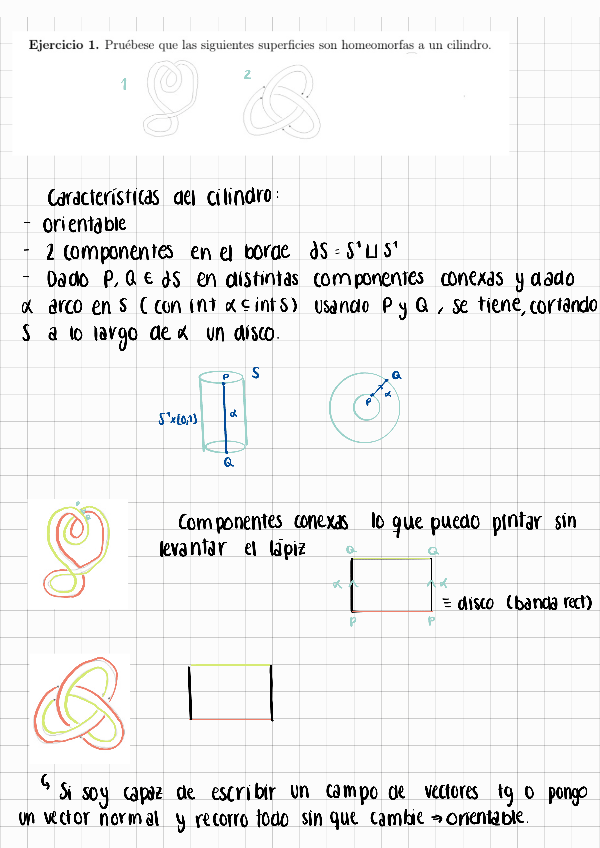 Ejercicio 1. Pruébese que las siguientes superficies son homeomorfas a un cilindro.
1
2
Características del cilindro:
- orientable
- 2 componentes en el borde ∂S = S¹ ⊔ S¹
- Dado P, Q ∈ ∂S en distintas componentes conexas y dado
α arco en S (con int α ⊆ int S) usando P y Q, se tiene, cortando
S a lo largo de α un disco.
P
S
S¹x(0,1)
α
Q
Q
P
α
Componentes conexas lo que puedo pintar sin
levantar el lápiz
Q
Q
α
α
≡ disco (banda rect)
P
P
↳ Si soy capaz de escribir un campo de vectores tg o pongo
un vector normal y recorro todo sin que cambie → orientable.